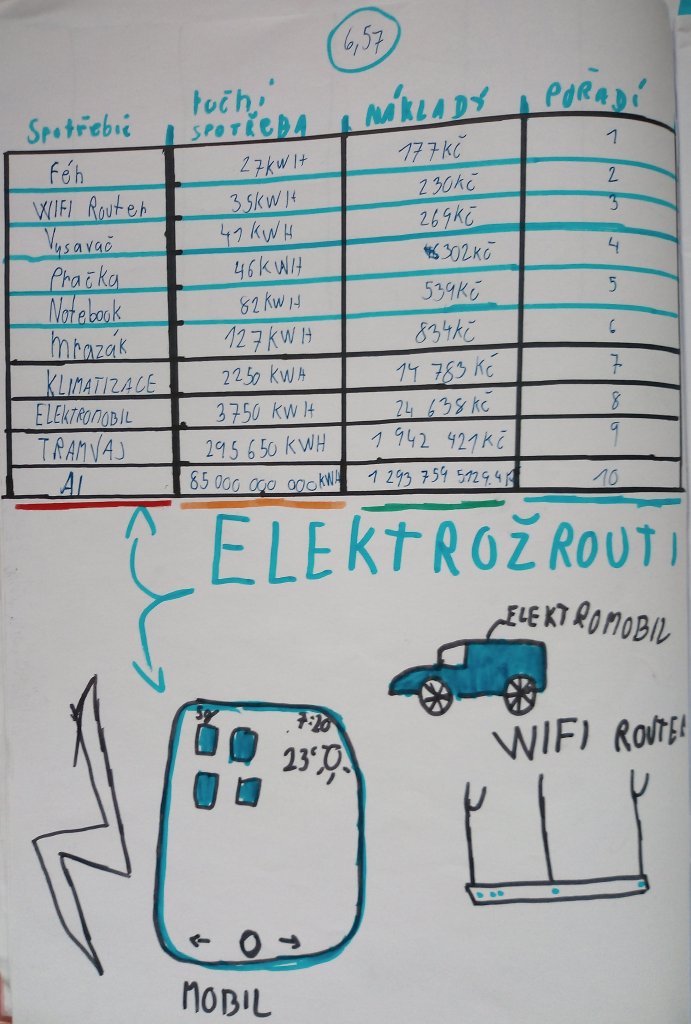 6,57
Spotřebič ročhí SPOTŘEBA NÁKLADY POŘADÍ
Féh 27KWH 177Kč 1
WIFI Routeh 35KWH 230Kč 2
Vysavač 41 KWH 269Kč 3
Pračka 46KWH 302Kč 4
Notebook 82KWH 539Kč 5
mrazák 127KWH 834Kč 6
KLIMATIZACE 2250 KWH 14 783 Kč 7
ELEKTROMOBIL 3750 KWH 24 638Kč 8
TRAMVAJ 295 650 KWH 1 942 421Kč 9
AI 85 000 000 000KWH 10
ELEKTROŽROUTI
ELEKTROMOBIL
WIFI ROUTER
5g 7:20
23°
MOBIL